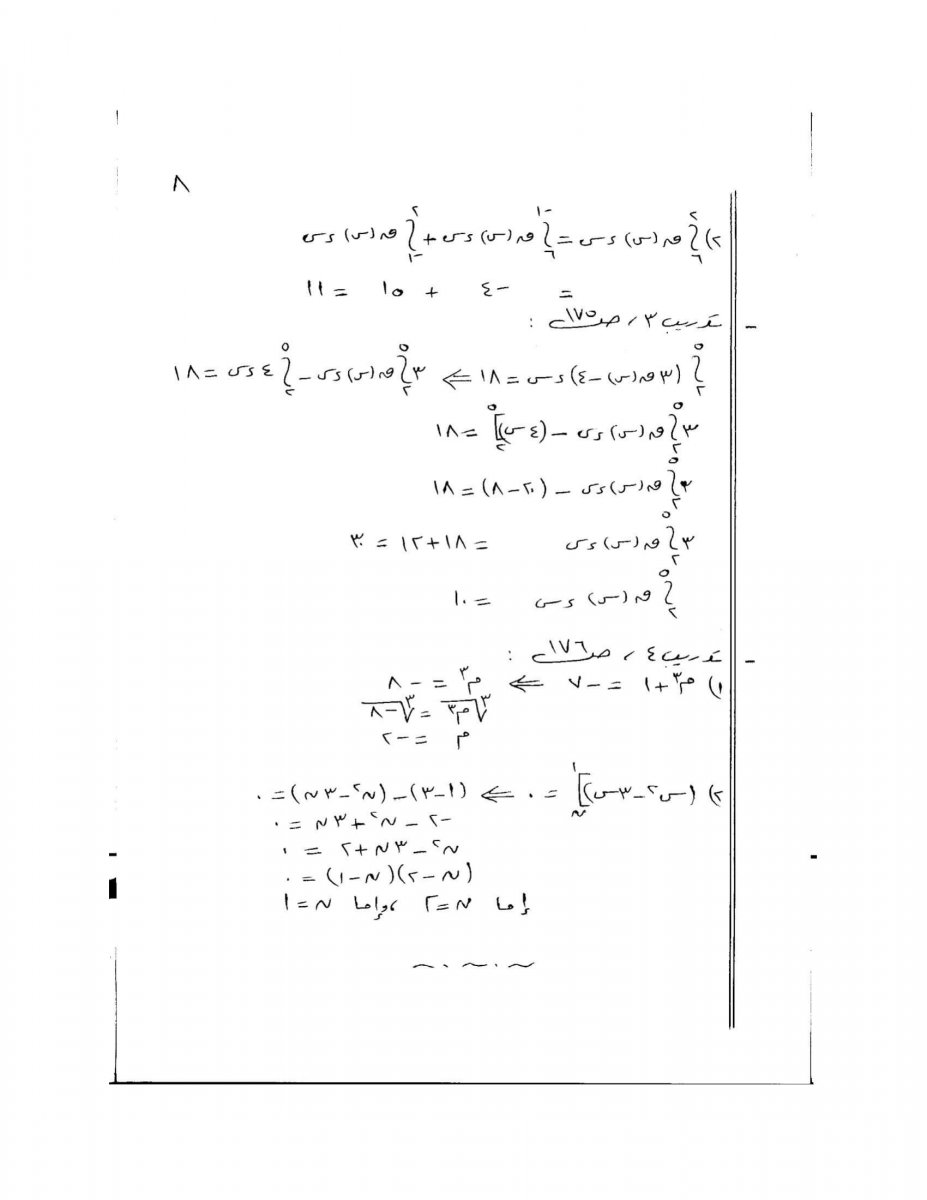 ٨
٢) ∫_٦^٢ ق(س) ءس = ∫_٦^{-١} ق(س) ءس + ∫_{-١}^٢ ق(س) ءس
= -٤ + ١٥ = ١١
- تدريب ٣، ص١٧٥ :
∫_٢^٥ (٣ق(س) - ٤) ءس = ١٨ ⇐ ٣∫_٢^٥ ق(س) ءس - ∫_٢^٥ ٤ ءس = ١٨
٣∫_٢^٥ ق(س) ءس - (٤س)]_٢^٥ = ١٨
٣∫_٢^٥ ق(س) ءس - (٢٠-٨) = ١٨
٣∫_٢^٥ ق(س) ءس = ١٨+١٢ = ٣٠
∫_٢^٥ ق(س) ءس = ١٠
- تدريب ٤، ص١٧٦ :
١) م^٣ + ١ = -٧ ⇐ م^٣ = -٨
∛(م^٣) = ∛(-٨)
م = -٢
٢) (س^٢ - ٣س)]_ن^١ = ٠ ⇐ (١-٣) - (ن^٢ - ٣ن) = ٠
-٢ - ن^٢ + ٣ن = ٠
ن^٢ - ٣ن + ٢ = ٠
(ن - ٢)(ن - ١) = ٠
إما ن = ٢ ،وإما ن = ١